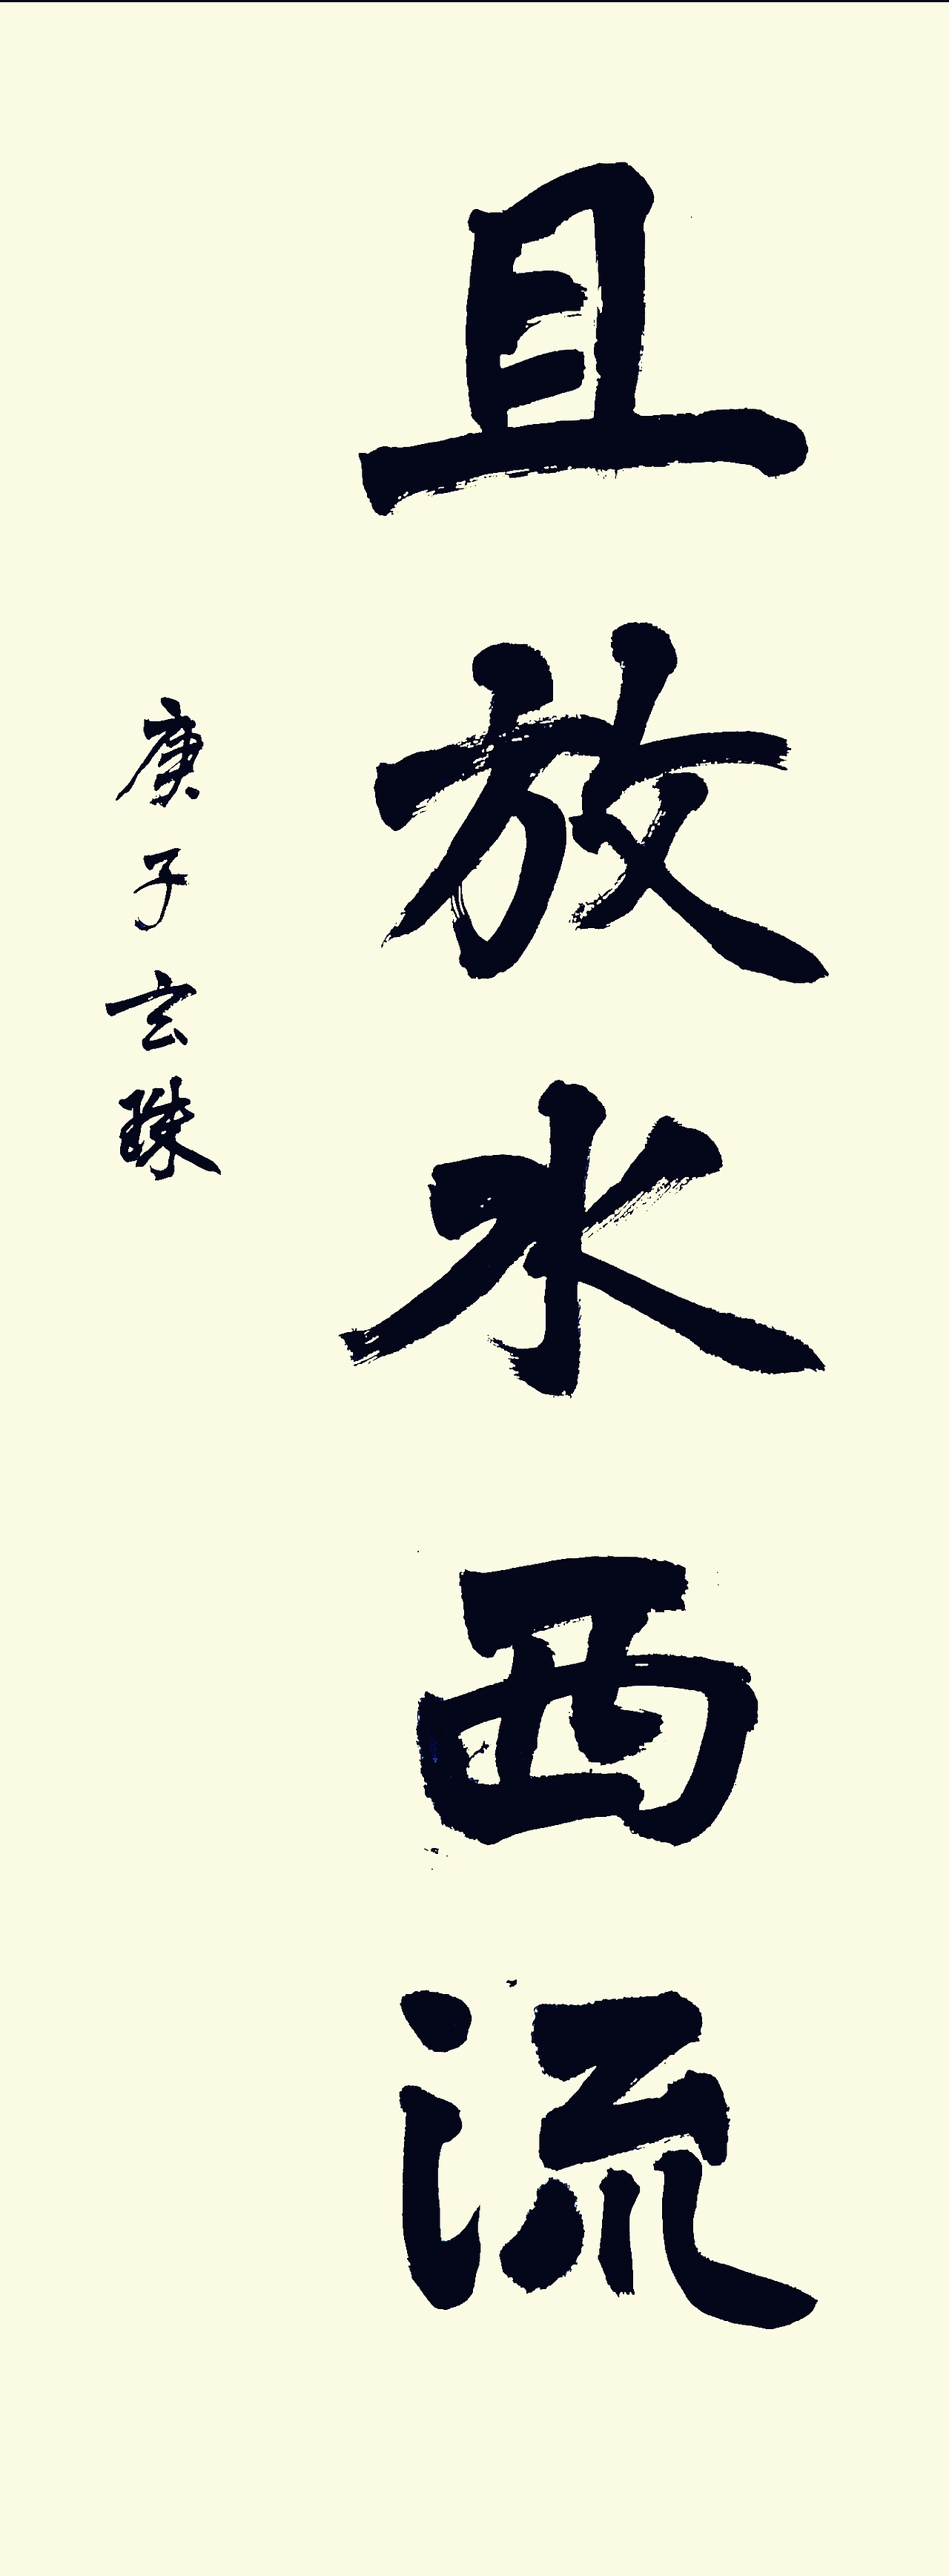 且放水西流
庚子玄珠